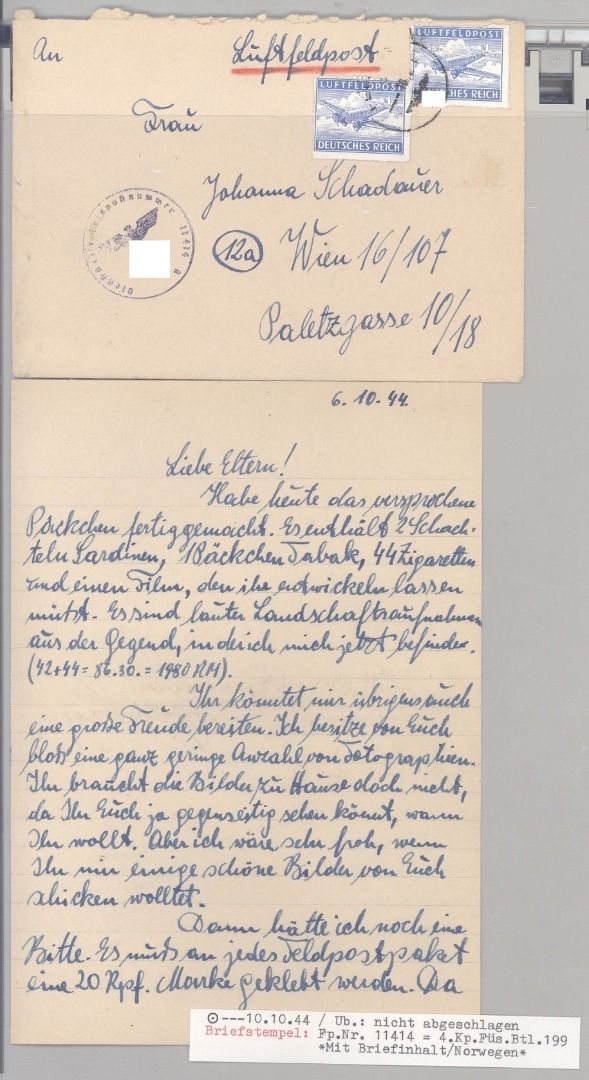 An
Luftfeldpost
LUFTFELDPOST
CHES REICH
LUFTFELDPOST
DEUTSCHES REICH
Frau
Johanna Schadauer
Feldpostnummer 11414 A
12a
Wien 16/107
Paletzgasse 10/18
6. 10. 44.
Liebe Eltern!
Habe heute das versprochene
Päckchen fertiggemacht. Es enthält 2 Schach-
teln Sardinen, 1 Päckchen Tabak, 44 Zigaretten
und einen Film, den ihr entwickeln lassen
müßt. Es sind lauter Landschaftsaufnahmen
aus der Gegend, in der ich mich jetzt befinde.
(42+44 = 86.30. = 1980 RM).
Ihr könntet mir übrigens auch
eine große Freude bereiten. Ich besitze von Euch
bloß eine ganz geringe Anzahl von Fotographien.
Ihr braucht die Bilder zu Hause doch nicht,
da Ihr Euch ja gegenseitig sehen könnt, wann
Ihr wollt. Aber ich wäre sehr froh, wenn
Ihr mir einige schöne Bilder von Euch
schicken wolltet.
Dann hätte ich noch eine
Bitte. Es muß an jedes Feldpostpaket
eine 20 Rpf. Marke geklebt werden. Da
⊙---10.10.44 / Ub.: nicht abgeschlagen
Briefstempel: Fp.Nr. 11414 = 4.Kp.Füs.Btl.199
*Mit Briefinhalt/Norwegen*